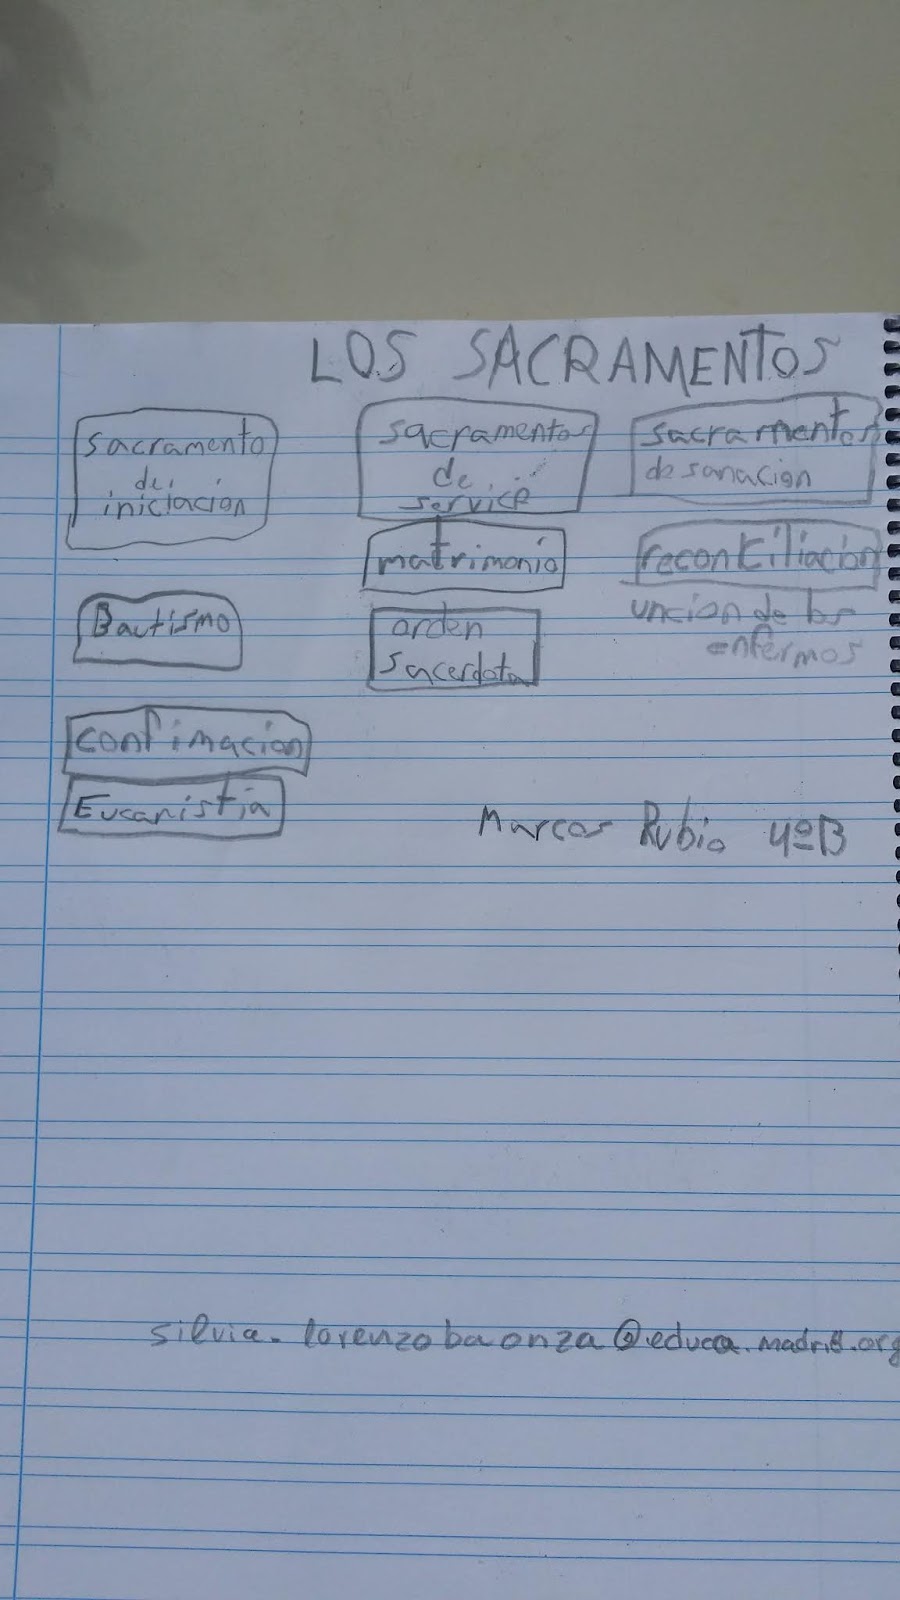 LOS SACRAMENTOS
sacramento
de
iniciación
Bautismo
confimacion
Eucaristia
sacramentos
de
service
matrimonio
orden
sacerdota
sacramentos
de sanacion
reconkiliación
uncion de los
enfermos
Marcos Rubio 4ºB
silvia.lorenzobaonza@educa.madrid.org